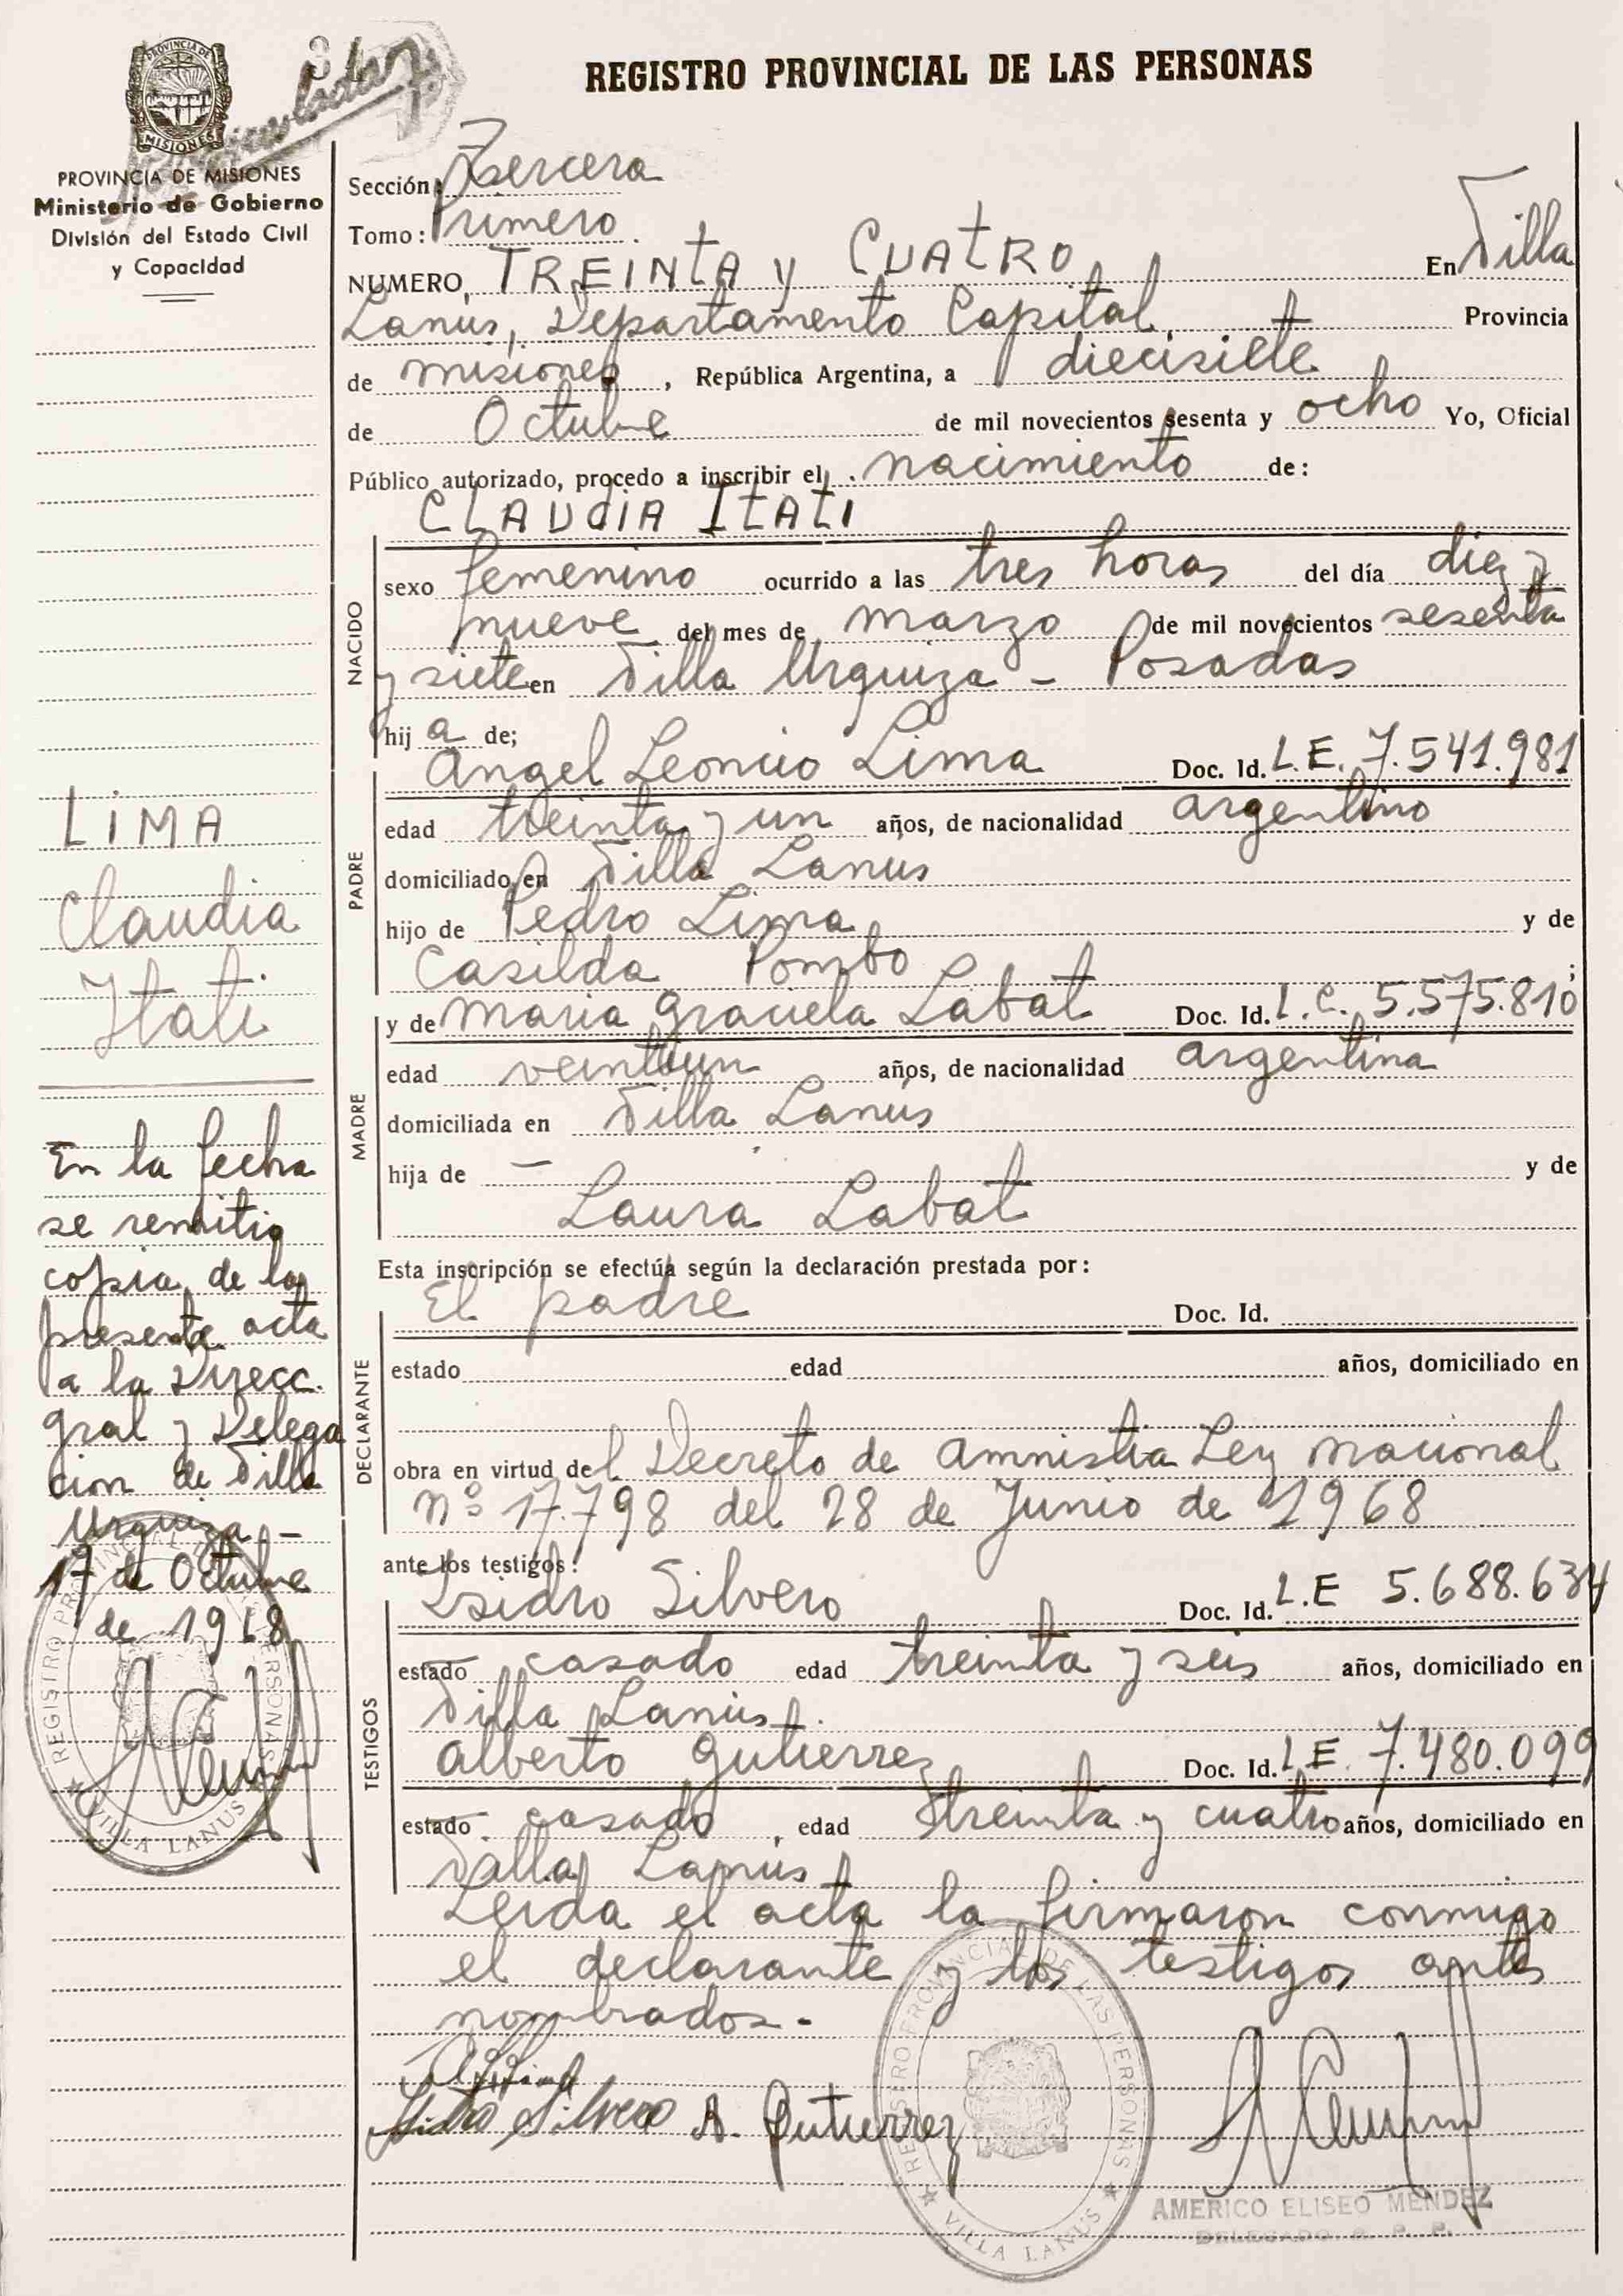 REGISTRO PROVINCIAL DE LAS PERSONAS
PROVINCIA DE
MISIONES
PROVINCIA DE MISIONES
Ministerio de Gobierno
División del Estado Civil
y Capacidad
Sección: Tercera
Tomo: Primero.
NUMERO, TREINTA y CUATRO En Villa
Lanus, Departamento Capital, Provincia
de misiones, República Argentina, a diecisiete
de Octubre de mil novecientos sesenta y ocho Yo, Oficial
Público autorizado, procedo a inscribir el nacimiento de:
CLAUDIA ITATI
NACIDO
sexo femenino ocurrido a las tres horas del día diez y
nueve del mes de marzo de mil novecientos sesenta
y siete en Villa Urquiza - Posadas
hija de;
Angel Leoncio Lima Doc. Id. L.E. 7.541.981
PADRE
edad treinta y un años, de nacionalidad argentino
domiciliado en Villa Lanus
hijo de Pedro Lima y de
Casilda Pombo ;
y de Maria Graciela Labat Doc. Id. L.C. 5.575.810
MADRE
edad veintiun años, de nacionalidad argentina
domiciliada en Villa Lanus
hija de — y de
Laura Labat
Esta inscripción se efectúa según la declaración prestada por:
El padre Doc. Id.
DECLARANTE
estado edad años, domiciliado en
obra en virtud del Decreto de amnistia Ley nacional
nº 17.798 del 28 de Junio de 1968
ante los testigos:
Isidro Silvero Doc. Id. L.E 5.688.634
TESTIGOS
estado casado edad treinta y seis años, domiciliado en
Villa Lanus.
Alberto Gutierrez Doc. Id. L.E. 7.480.099
estado casado, edad treinta y cuatro años, domiciliado en
Villa Lanus
Leida el acta la firmaron conmigo
el declarante y los testigos antes
nombrados.-
Isidro Silvero A. Gutierrez
REGISTRO PROVINCIAL DE LAS PERSONAS
VILLA LANUS
AMERICO ELISEO MENDEZ
DELEGADO R. P. P.
LIMA
Claudia
Itati
En la fecha
se remitio
copia de la
presente acta
a la Direcc.
Gral y Delega
cion de Villa
Urquiza.-
17 de Octubre
de 1968
REGISTRO PROVINCIAL DE LAS PERSONAS
VILLA LANUS